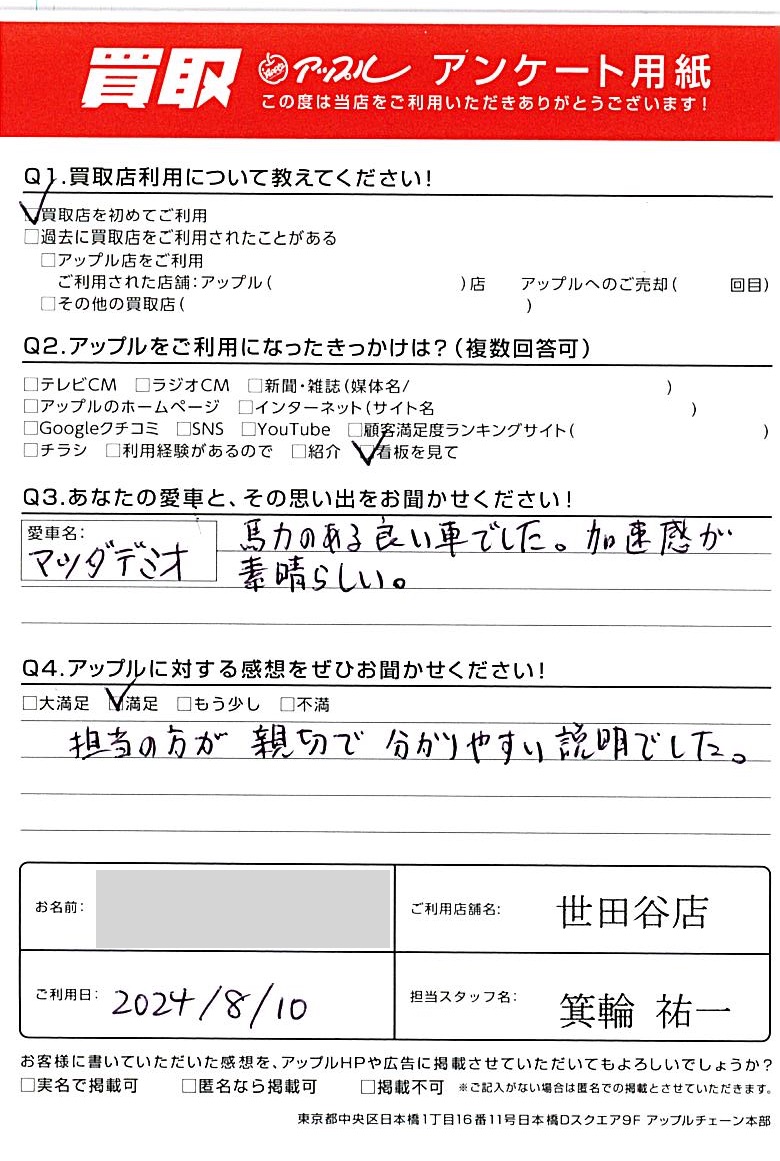 買取 アップル アンケート用紙
この度は当店をご利用いただきありがとうございます!
Q1.買取店利用について教えてください!
□買取店を初めてご利用
□過去に買取店をご利用されたことがある
□アップル店をご利用
ご利用された店舗:アップル( )店 アップルへのご売却( 回目)
□その他の買取店( )
Q2.アップルをご利用になったきっかけは?(複数回答可)
□テレビCM □ラジオCM □新聞・雑誌(媒体名/ )
□アップルのホームページ □インターネット(サイト名 )
□Googleクチコミ □SNS □YouTube □顧客満足度ランキングサイト( )
□チラシ □利用経験があるので □紹介 □看板を見て
Q3.あなたの愛車と、その思い出をお聞かせください!
愛車名:
マツダデミオ
馬力のある良い車でした。加速感が
素晴らしい。
Q4.アップルに対する感想をぜひお聞かせください!
□大満足 □満足 □もう少し □不満
担当の方が親切で分かりやすい説明でした。
お名前:
ご利用店舗名: 世田谷店
ご利用日: 2024/8/10
担当スタッフ名: 箕輪 祐一
お客様に書いていただいた感想を、アップルHPや広告に掲載させていただいてもよろしいでしょうか?
□実名で掲載可 □匿名なら掲載可 □掲載不可 ※ご記入がない場合は匿名での掲載とさせていただきます。
東京都中央区日本橋1丁目16番11号日本橋Dスクエア9F アップルチェーン本部